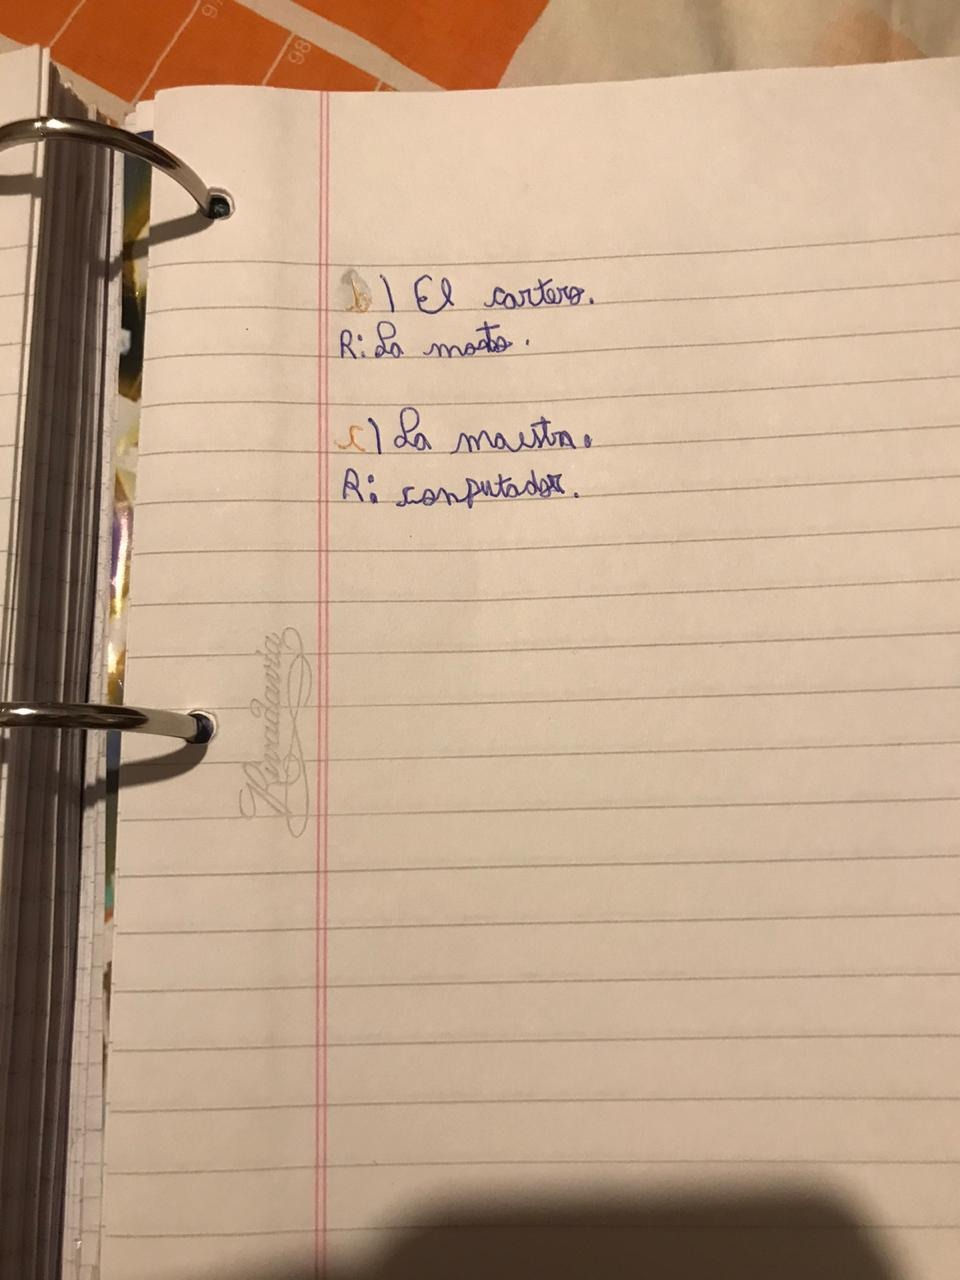 97
98
b) El cartero.
R: La moto.
c) La maestra.
R: computador.
Rivadavia